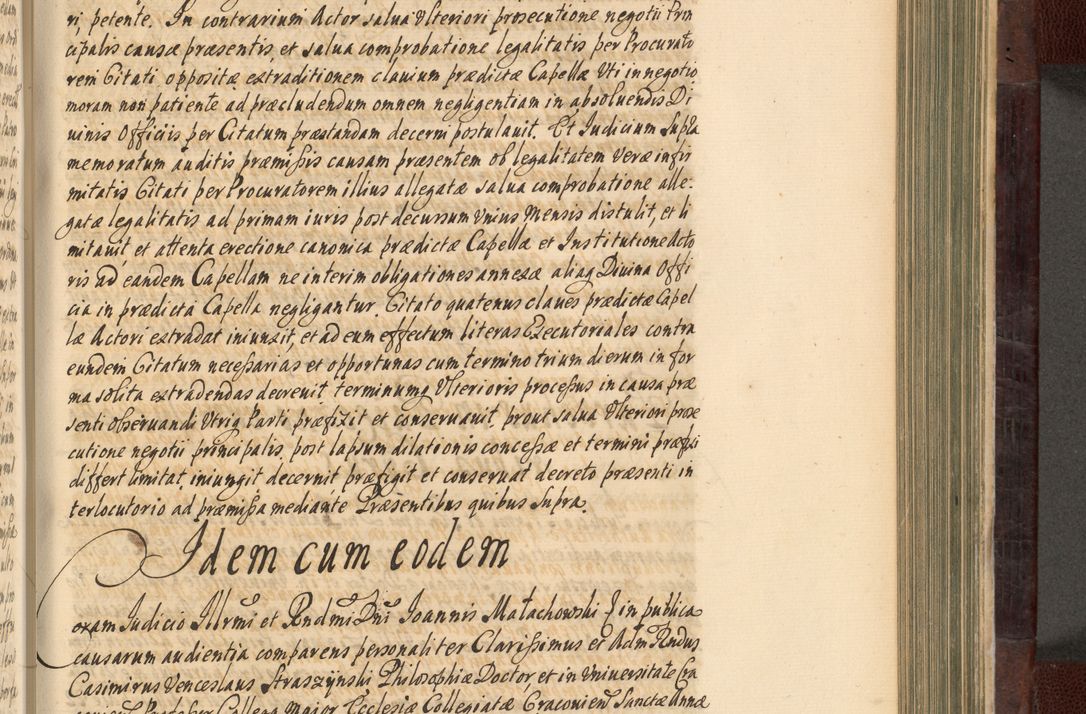 ri, petente. In contrarium Actor salua Vlteriori prosecutione negotii Prin
cipalis causæ præsentis, et salua comprobatione legalitatis per Procurato
rem Citati oppositæ extraditionem clauium prædictæ Capellæ Vti in negotio
moram non patiente ad præcludendum omnem negligentiam in absoluendis Di
uinis Officiis per Citatum præstandam decerni postulauit. Et Iudicium Supra
memoratum auditis præmissis causam præsentem ob legalitatem Veræ infir
mitatis Citati per Procuratorem illius allegatæ salua comprobatione alle-
gatæ legalitatis ad primam iuris post decursum Vnius Mensis distulit, et li
mitauit et attenta erectione canonica prædictæ Capellæ et Institutione Acto
ris ad eandem Capellam ne interim obligationes annexæ aliaq Diuina Offi
cia in prædicta Capella negligantur. Citato quatenus claues prædictæ Capel
læ Actori extradat iniunxit, et ad eum effectum literas Executoriales contra
eundem Citatum necessarias et opportunas cum termino trium dierum in for
ma solita extradendas decreuit terminumq Vlterioris processus in causa præ
senti obseruandi Vtriq Parti præfixit et conseruauit, prout salua Vlteriori prose
cutione negotii principalis, post lapsum dilationis concessæ et termini præfixi
differt limitat, iniungit decernit præfigit et conseruat decreto præsenti in
terlocutorio ad præmissa mediante Præsentibus quibus Supra.
Idem cum eodem
oram Iudicio Illrmi et Rndmi Dni Ioannis Małachowski in publica
causarum audientia comparens personaliter Clarissimus et Adm Rndus
Casimirus Venceslaus Straszynski Philosophiæ Doctor, et in Vniversitate Cra
Collega Maior Ecclesiæ Collegiatæ Cracouien Sanctæ Annæ